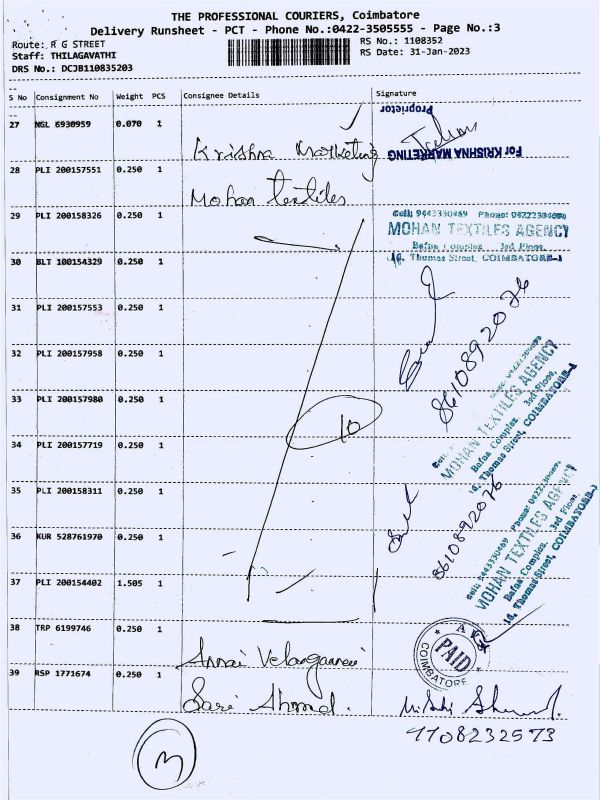 THE PROFESSIONAL COURIERS, Coimbatore
Delivery Runsheet - PCT - Phone No.:0422-3505555 - Page No.:3
Route: R G STREET
Staff: THILAGAVATHI
DRS No.: DCJB110835203
RS No.: 1108352
RS Date: 31-Jan-2023
S No Consignment No Weight PCS Consignee Details Signature
27 NGL 6930959 0.070 1 Krishna Marketing
For KRISHNA MARKETING
Proprietor
28 PLI 200157551 0.250 1 Mohan Textiles
29 PLI 200158326 0.250 1
Cell: 9443330469 Phone: 04222304696
MOHAN TEXTILES AGENCY
Bafna Complex 3rd Floor,
16, Thomas Street, COIMBATORE-1
30 BLT 100154329 0.250 1
31 PLI 200157553 0.250 1
8610892076
32 PLI 200157958 0.250 1
33 PLI 200157980 0.250 1
10
MOHAN TEXTILES AGENCY
Bafna Complex, 3rd Floor,
16, Thomas Street, COIMBATORE-1
34 PLI 200157719 0.250 1
35 PLI 200158311 0.250 1
8610892076
36 KUR 528761970 0.250 1
37 PLI 200154402 1.505 1
MOHAN TEXTILES AGENCY
Bafna Complex, 3rd Floor,
16, Thomas Street, COIMBATORE-1
38 TRP 6199746 0.250 1 Annai Velanganni
PAID
COIMBATORE
39 RSP 1771674 0.250 1 Sari Ahmed.
9108232573
3